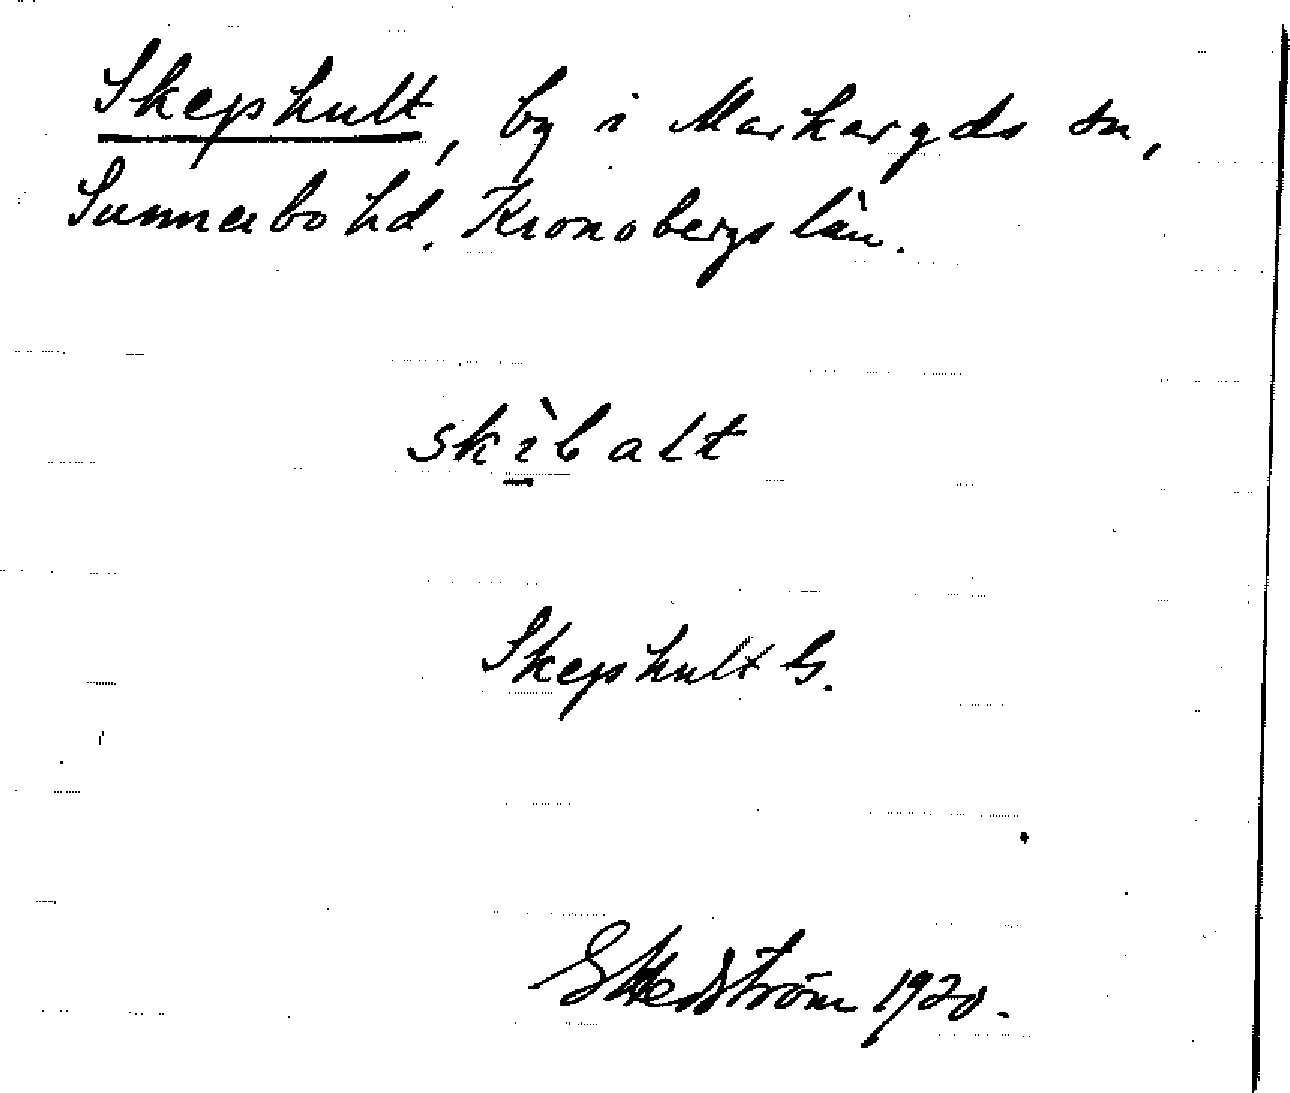 Skephult, by i Markaryds sn,
Sunnerbo hd. Kronobergs län.
skìbalt
Skephult G.
G Hedström 1920.